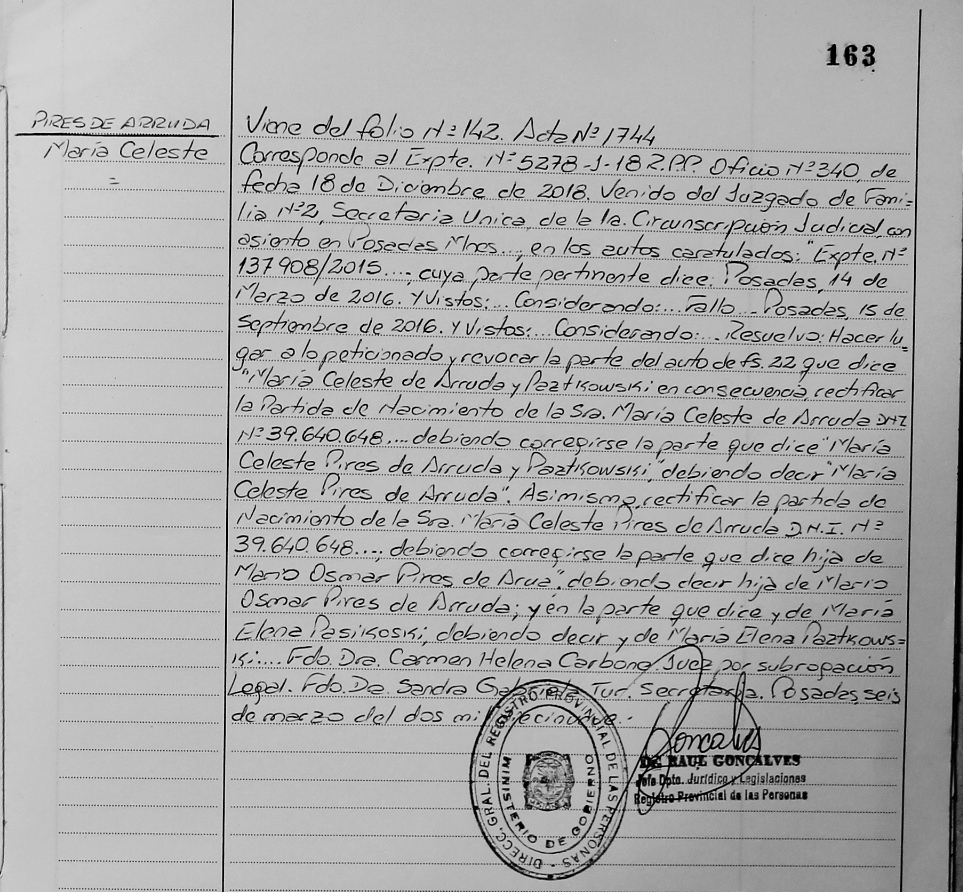 163
PIRES DE ARRUDA
María Celeste
=
Viene del folio Nº 142. Acta Nº 1744
Corresponde al Expte. Nº 5278-J-18 R.P.P. Oficio Nº 340, de
fecha 18 de Diciembre de 2018. Venido del Juzgado de Fami-
lia Nº2, Secretaria Unica, de la 1a. Circunscripción Judicial, con
asiento en Posadas Mnes..., en los autos caratulados: "Expte. Nº
137908/2015...., cuya parte pertinente dice: Posadas, 14 de
Marzo de 2016. Y Vistos:... Considerando:... Fallo... Posadas, 15 de
Septiembre de 2016. Y Vistos:... Considerando:... Resuelvo: Hacer lu-
gar a lo peticionado y revocar la parte del auto de fs. 22 que dice
"María Celeste de Arruda y Paztkowski en consecuencia, rectificar
la Partida de Nacimiento de la Sra. María Celeste de Arruda DNI
Nº 39.640.648.... debiendo corregirse la parte que dice "María
Celeste Pires de Arruda y Paztkowski," debiendo decir "María
Celeste Pires de Arruda". Asimismo, rectificar la partida de
Nacimiento de la Sra. María Celeste Pires de Arruda D.N.I. Nº
39.640.648...., debiendo corregirse la parte que dice hija de
Mario Osmar Pires de Arua", debiendo decir hija de Mario
Osmar Pires de Arruda; y en la parte que dice y de María
Elena Pasikoski, debiendo decir y de María Elena Paztkows=
ki.... Fdo. Dra. Carmen Helena Carbone Juez por subrogación
Legal. Fdo. Da. Sandra Gabriela Tur. Secretaria. Posadas, seis
de marzo del dos mil diecinueve.-
Goncalves
DR RAUL GONCALVES
Jefe Dpto. Jurídico y Legislaciones
Registro Provincial de las Personas
DIRECC. GRAL. DEL REGISTRO PROVINCIAL DE LAS PERSONAS -
MINISTERIO DE GOBIERNO